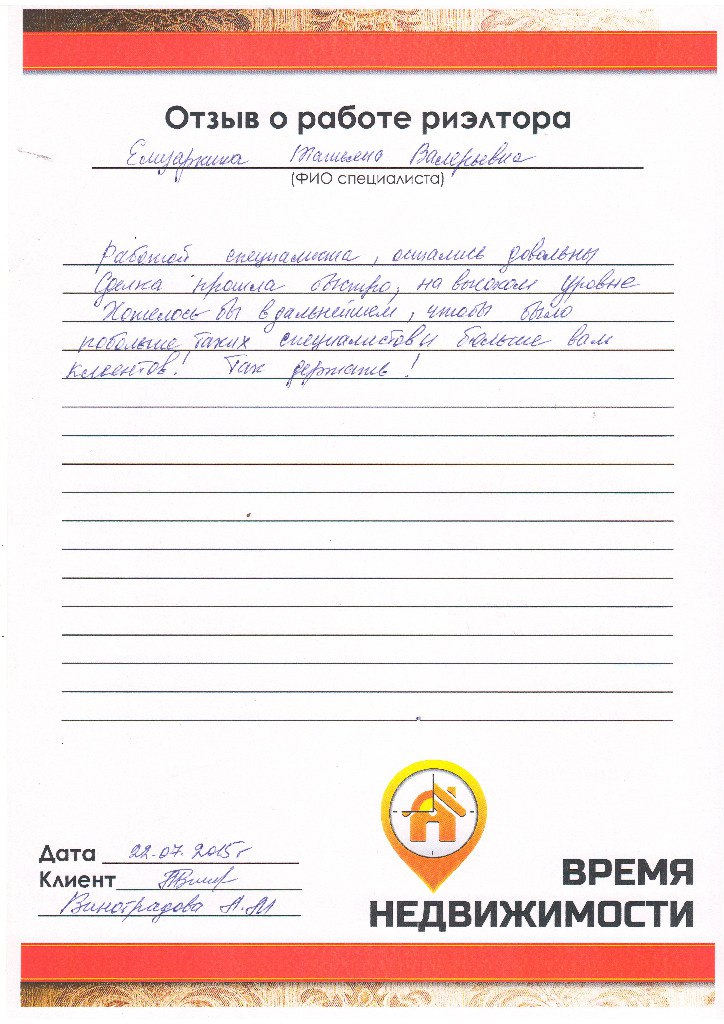 Отзыв о работе риэлтора
Татьяна Валерьевна
(ФИО специалиста)
Работой специалиста, остались довольны
Сделка прошла быстро, на высоком уровне
Хотелось бы в дальнейшем, чтобы было
побольше таких специалистов и больше вам
клиентов! Так держать!
Дата 22.07.2015г
Клиент
Виноградова А.М
ВРЕМЯ
НЕДВИЖИМОСТИ